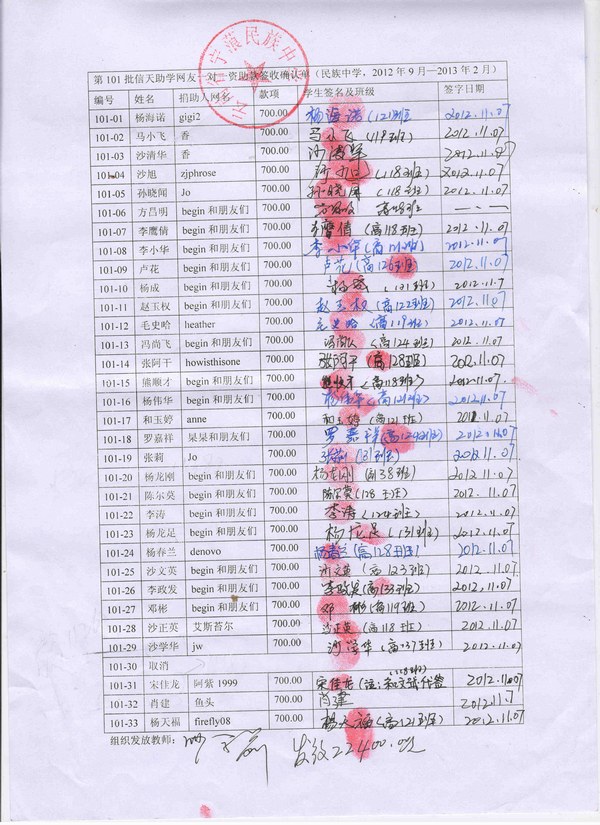 第101批信天助学网友一对一资助款签收确认单（民族中学，2012年9月—2013年2月）
编号 姓名 捐助人网名 款项 学生签名及班级 签字日期
101-01 杨海诺 gigi2 700.00 杨海诺（121班） 2012.11.07
101-02 马小飞 香 700.00 马小飞 119班） 2012.11.07
101-03 沙清华 香 700.00 沙清华 2012.11.07
101-04 沙旭 zjphrose 700.00 （118班） 2012.11.07
101-05 孙晓闻 Jo 700.00 孙晓闻（118班） 2012.11.07
101-06 方昌明 begin 和朋友们 700.00
101-07 李鹰倩 begin 和朋友们 700.00 李鹰倩（高118班） 2012.11.07
101-08 李小华 begin 和朋友们 700.00 李小华（高 班） 2012.11.07
101-09 卢花 begin 和朋友们 700.00 卢花（高126班） 2012.11.07
101-10 杨成 begin 和朋友们 700.00 杨成（121班） 2012.11.7
101-11 赵玉权 begin 和朋友们 700.00 赵玉权（高122班） 2012.11.07
101-12 毛史哈 heather 700.00 毛史哈（高119班） 2012.11.07
101-13 冯尚飞 begin 和朋友们 700.00 （高124班） 2012.11.07
101-14 张阿干 howisthisone 700.00 张阿干（高128班） 2012.11.07
101-15 熊顺才 begin 和朋友们 700.00 （高118班） 2012.11.07
101-16 杨伟华 begin 和朋友们 700.00 杨伟华（高121班） 2012.11.07
101-17 和玉婷 anne 700.00 和玉婷（高121班） 2012.11.07
101-18 罗嘉祥 杲杲和朋友们 700.00 罗嘉祥 2012.11.07
101-19 张莉 Jo 700.00 张莉（131班） 2012.11.07
101-20 杨龙刚 begin 和朋友们 700.00 杨龙刚（高138班） 2012.11.07
101-21 陈尔英 begin 和朋友们 700.00 陈尔英（128班） 2012.11.07
101-22 李涛 begin 和朋友们 700.00 李涛（124班） 2012.11.07
101-23 杨龙足 begin 和朋友们 700.00 杨龙足（131班） 2012.11.07
101-24 杨春兰 denovo 700.00 杨春兰（高128班） 2012.11.07
101-25 沙文英 begin 和朋友们 700.00 沙文英（高123班） 2012.11.07
101-26 李政发 begin 和朋友们 700.00 李政发（高133班） 2012.11.07
101-27 邓彬 begin 和朋友们 700.00 邓彬（高119班） 2012.11.07
101-28 沙正英 艾斯苔尔 700.00 沙正英（高118班） 2012.11.07
101-29 沙学华 jw 700.00 沙学华（高137班） 2012.11.07
101-30 取消
101-31 宋佳龙 阿紫1999 700.00 宋佳龙 2012.11.07
101-32 肖建 鱼头 700.00 肖建 2012.11.07
101-33 杨天福 firefly08 700.00 杨天福（高121班） 2012.11.07
组织发放教师： 发放22400.00元